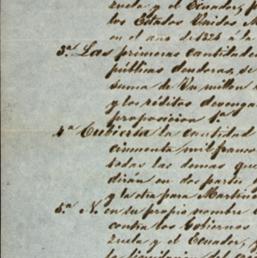 zuela y el Ecuador, p
los Estados Unidos M
en el año de 1824 á la
3.ª Las primeras cantidade
públicas deudoras, se
suma de Un millon d
y los réditos devenga
proposicion 1ª
4.ª Cubierta la cantidad
cincuenta mil francos
todas las demas que
dirán en dos partes
y la otra para Martin
5.ª N. en su propio nombre
contra los Gobiernos
zuela y el Ecuador, y